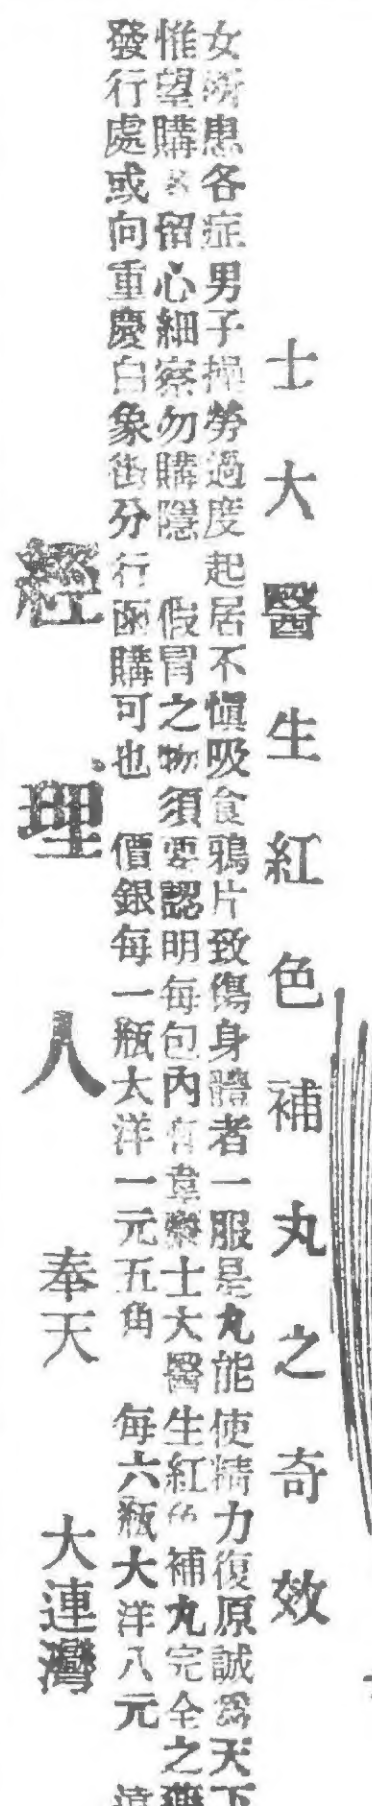 士大醫生紅色補丸之奇效
女所患各症男子操勞過度起居不慎吸食鴉片致傷身體者一服是丸能使精力復原誠為天下
惟望購者留心細察勿購隱 假冒之物須要認明每包內有韋廉士大醫生紅色補丸完全之藥
發行處或向重慶白象街分行函購可也 價銀每一瓶大洋一元五角 每六瓶大洋八元 遠
經理人 奉天 大連灣